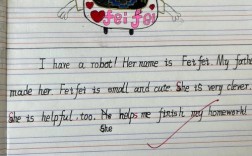 fei fei
I have a robot! Her name is Feifei. My fathe
made her. Feifei is small and cute. She is very clever.
She is helpful, too. He helps me finish my homework!
She